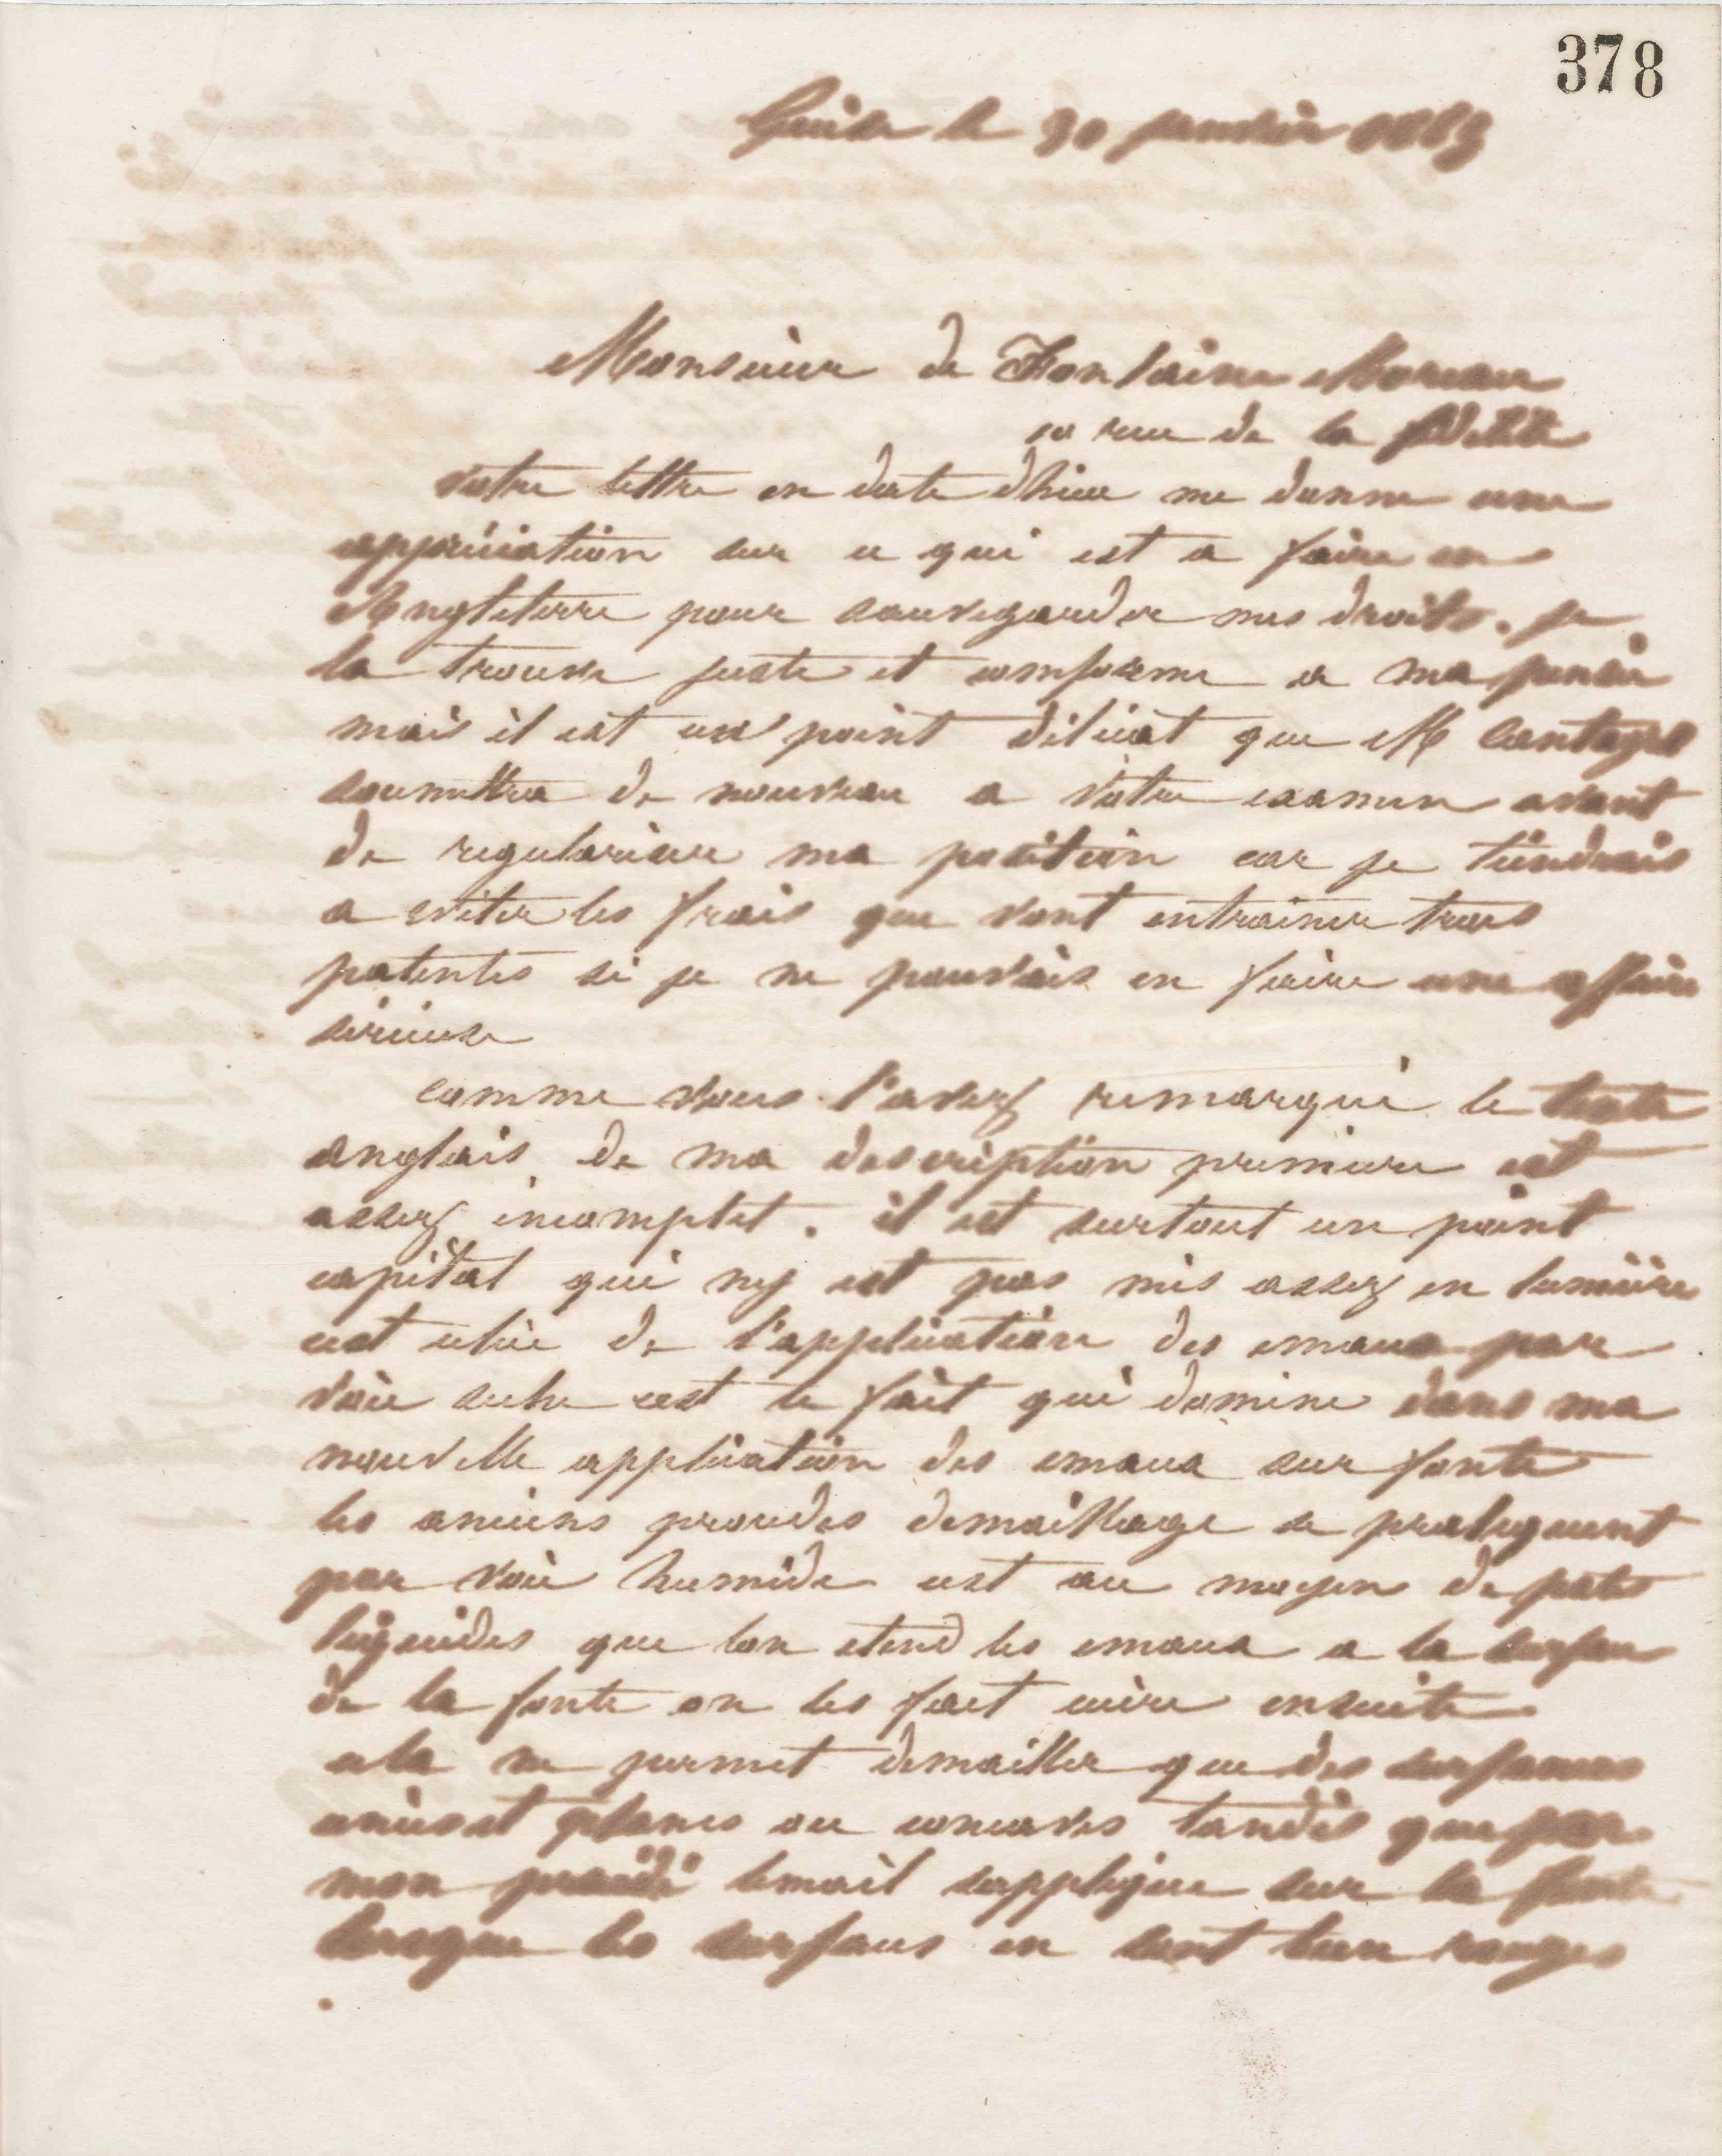 378
Guise le 30 janvier 1863
Monsieur de Fontaine Moreau
10 rue de la fidélité
votre lettre en date dhier me donne une
appréciation sur ce qui est a faire en
Angleterre pour sauvegarder mes droits. je
la trouve juste et conforme a ma pensée
mais il est un point délicat que M Cantagrel
soumettra de nouveau a votre examen avant
de regulariser ma position car je tiendrais
a eviter les frais que vont entrainer trois
patentes si je ne pouvais en faire une affaire
serieuse
comme vous l'avez remarqué le texte
anglais de ma description premiere est
assez incomplet. il est surtout un point
capital qui ny est pas mis assez en lumière
cest celui de l'application des emaux par
voie seche cest le fait qui domine dans ma
nouvelle application des emaux sur fonte
les anciens procedes demaillage se pratiquent
par voie humide cest au moyen de pates
liquides que lon etend les emaux a la surface
de la fonte on les fait cuire ensuite
cela ne permet demailler que des surfaces
unies et planes ou concaves tandis que par
mon procédé lemail sapplique sur la fonte
lorsque les surfaces en sont bien rouges